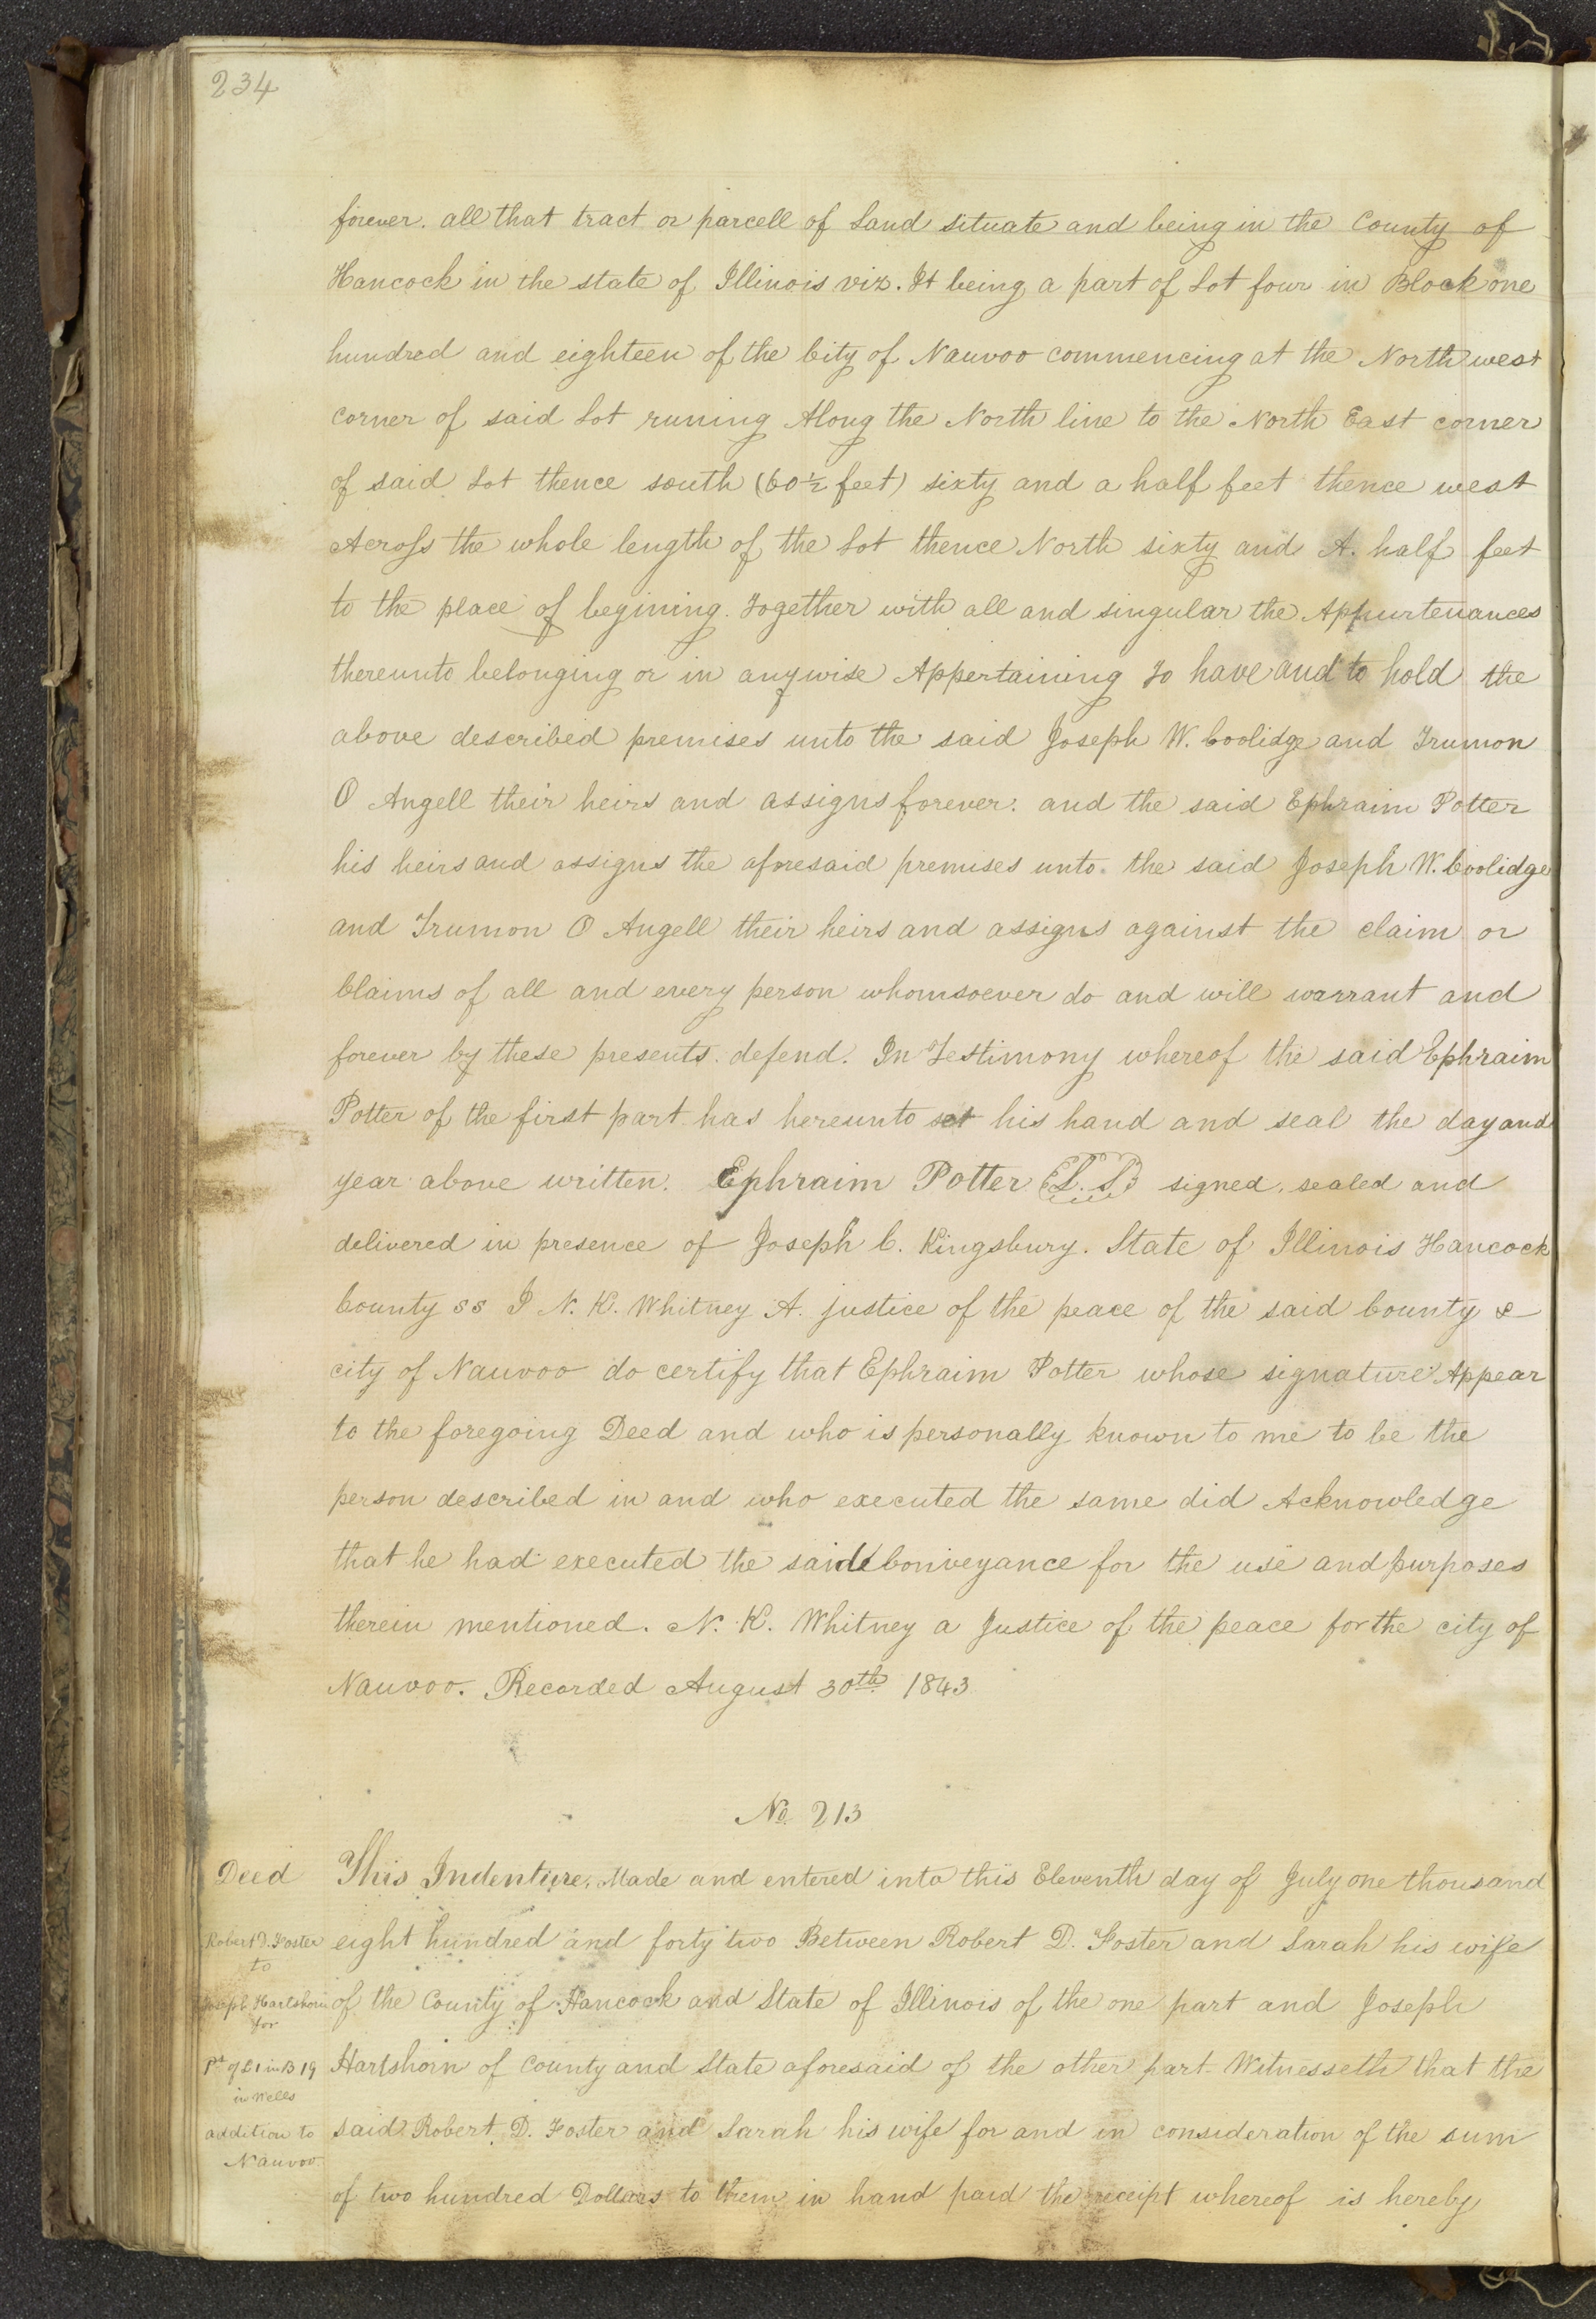 234
forever. all that tract or parcell of Land situate and being in the County of
Hancock in the state of Illinois viz. It being a part of Lot four in Block one
hundred and eighteen of the City of Nauvoo commencing at the North west
corner of said Lot runing Along the North line to the North East corner
of said Lot thence south (60½ feet) sixty and a half feet thence west
Across the whole length of the Lot thence North sixty and A. half feet
to the place of begining. Together with all and singular the Appurtenances
thereunto belonging or in anywise Appertaining To have and to hold the
above described premises unto the said Joseph W. Coolidge and Trumon
O Angell their heirs and assigns forever: and the said Ephraim Potter
his heirs and assigns the aforesaid premises unto the said Joseph W. Coolidge
and Trumon O Angell their heirs and assigns against the claim or
Claims of all and every person whomsoever do and will warrant and
forever by these presents defend. In Testimony whereof the said Ephraim
Potter of the first part has hereunto set his hand and seal the day and
year above written. Ephraim Potter L. S. signed, sealed and
delivered in presence of Joseph C. Kingsbury. State of Illinois Hancock
County ss I N. K. Whitney A. justice of the peace of the said County &
city of Nauvoo do certify that Ephraim Potter whose signature Appear
to the foregoing Deed and who is personally known to me to be the
person described in and who executed the same did Acknowledge
that he had executed the said Conveyance for the use and purposes
therein mentioned. N. K. Whitney a Justice of the peace for the city of
Nauvoo. Recorded August 30th 1843
No. 213
Deed
Robert D. Foster
to
Joseph Hartshorn
for
Pt of L 1 in B 19
in Wells
addition to
Nauvoo
This Indenture, Made and entered into this Eleventh day of July one thousand
eight hundred and forty two Between Robert D. Foster and Sarah his wife
of the County of Hancock and State of Illinois of the one part and Joseph
Hartshorn of County and State aforesaid of the other part. Witnesseth that the
said Robert D. Foster and Sarah his wife for and in consideration of the sum
of two hundred Dollars to them in hand paid the receipt whereof is hereby